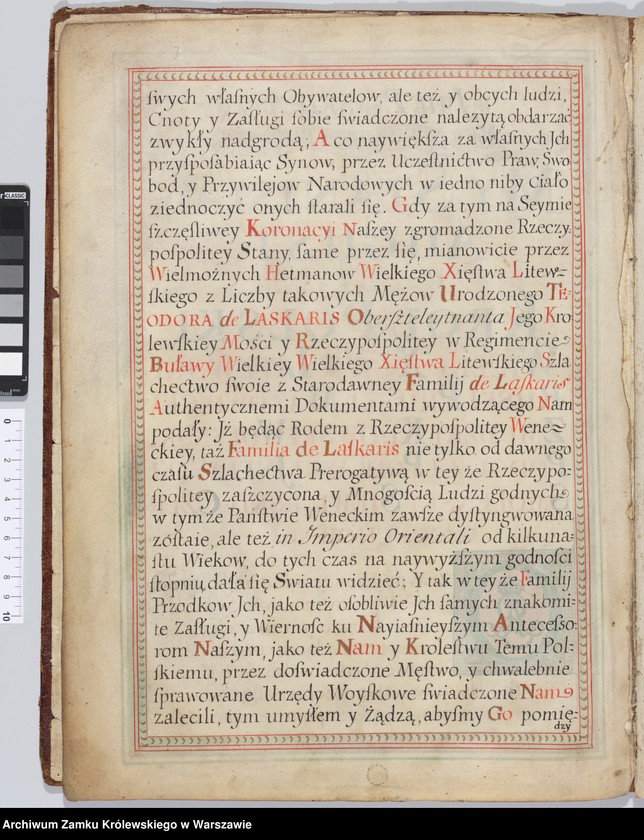 ſwych właſnych Obywatelow, ale też y obcych ludzi,
Cnoty y Zaſługi ſobie ſwiadczone nalezytą obdarzać
zwykły nadgrodą; A co naywiękſza za właſnych Jch
przyſpoſabiaiąc Synow, przez Uczeſtnictwo Praw, Swo
bod, y Przywilejow Narodowych w iedno niby Ciało
ziednoczyć onych ſtarali ſię. Gdy za tym na Seymie
ſzczęśliwey Koronacyi Naſzey zgromadzone Rzeczy,
poſpolitey Stany, ſame przez ſię, mianowicie przez
Wielmożnych Hetmanow Wielkiego Xięſtwa Litew=
ſkiego z Liczby takowych Mężow Urodzonego TE=
ODORA de LASKARIS Oberſzteleytnanta Jego Kro
lewſkiey Mości y Rzeczypoſpolitey w Regimencie
Buławy Wielkiey Wielkiego Xięſtwa Litewſkiego Szla
chectwo ſwoie z Starodawney Familij de Laſkaris
Authentycznemi Dokumentami wywodzącego Nam
podały: Jż będąc Rodem z Rzeczypoſpolitey Wene=
ckiey, taż Familia de Laſkaris nie tylko od dawnego
czaſu Szlachectwa Prerogatywą w tey że Rzeczypo=
ſpolitey zaſzczycona, y Mnogoſcią Ludzi godnych
w tym że Pańſtwie Weneckim zawſze dyſtyngwowana
zóſtaie, ale też in Imperio Orientali od kilkuna=
ſtu Wiekow, do tych czas na naywyżſzym godnoſci
ſtopniu dała ſię Swiatu widzieć; Y tak w tey że Familij
Przodkow Jch, jako też oſobliwie Jch ſamych znakomi=
te Zaſługi, y Wiernoſc ku Nayiaśnieyſzym Anteceſſo=
rom Naſzym, jako też Nam y Kroleſtwu Temu Pol=
ſkiemu, przez doſwiadczone Męſtwo, y chwalebnie
ſprawowane Urzędy Woyſkowe ſwiadczone Nam
zalecili, tym umyſłem y Żądzą, abyſmy Go pomię=
dzy
0 1 2 3 4 5 6 7 8 9 10
CLASSIC
Archiwum Zamku Królewskiego w Warszawie